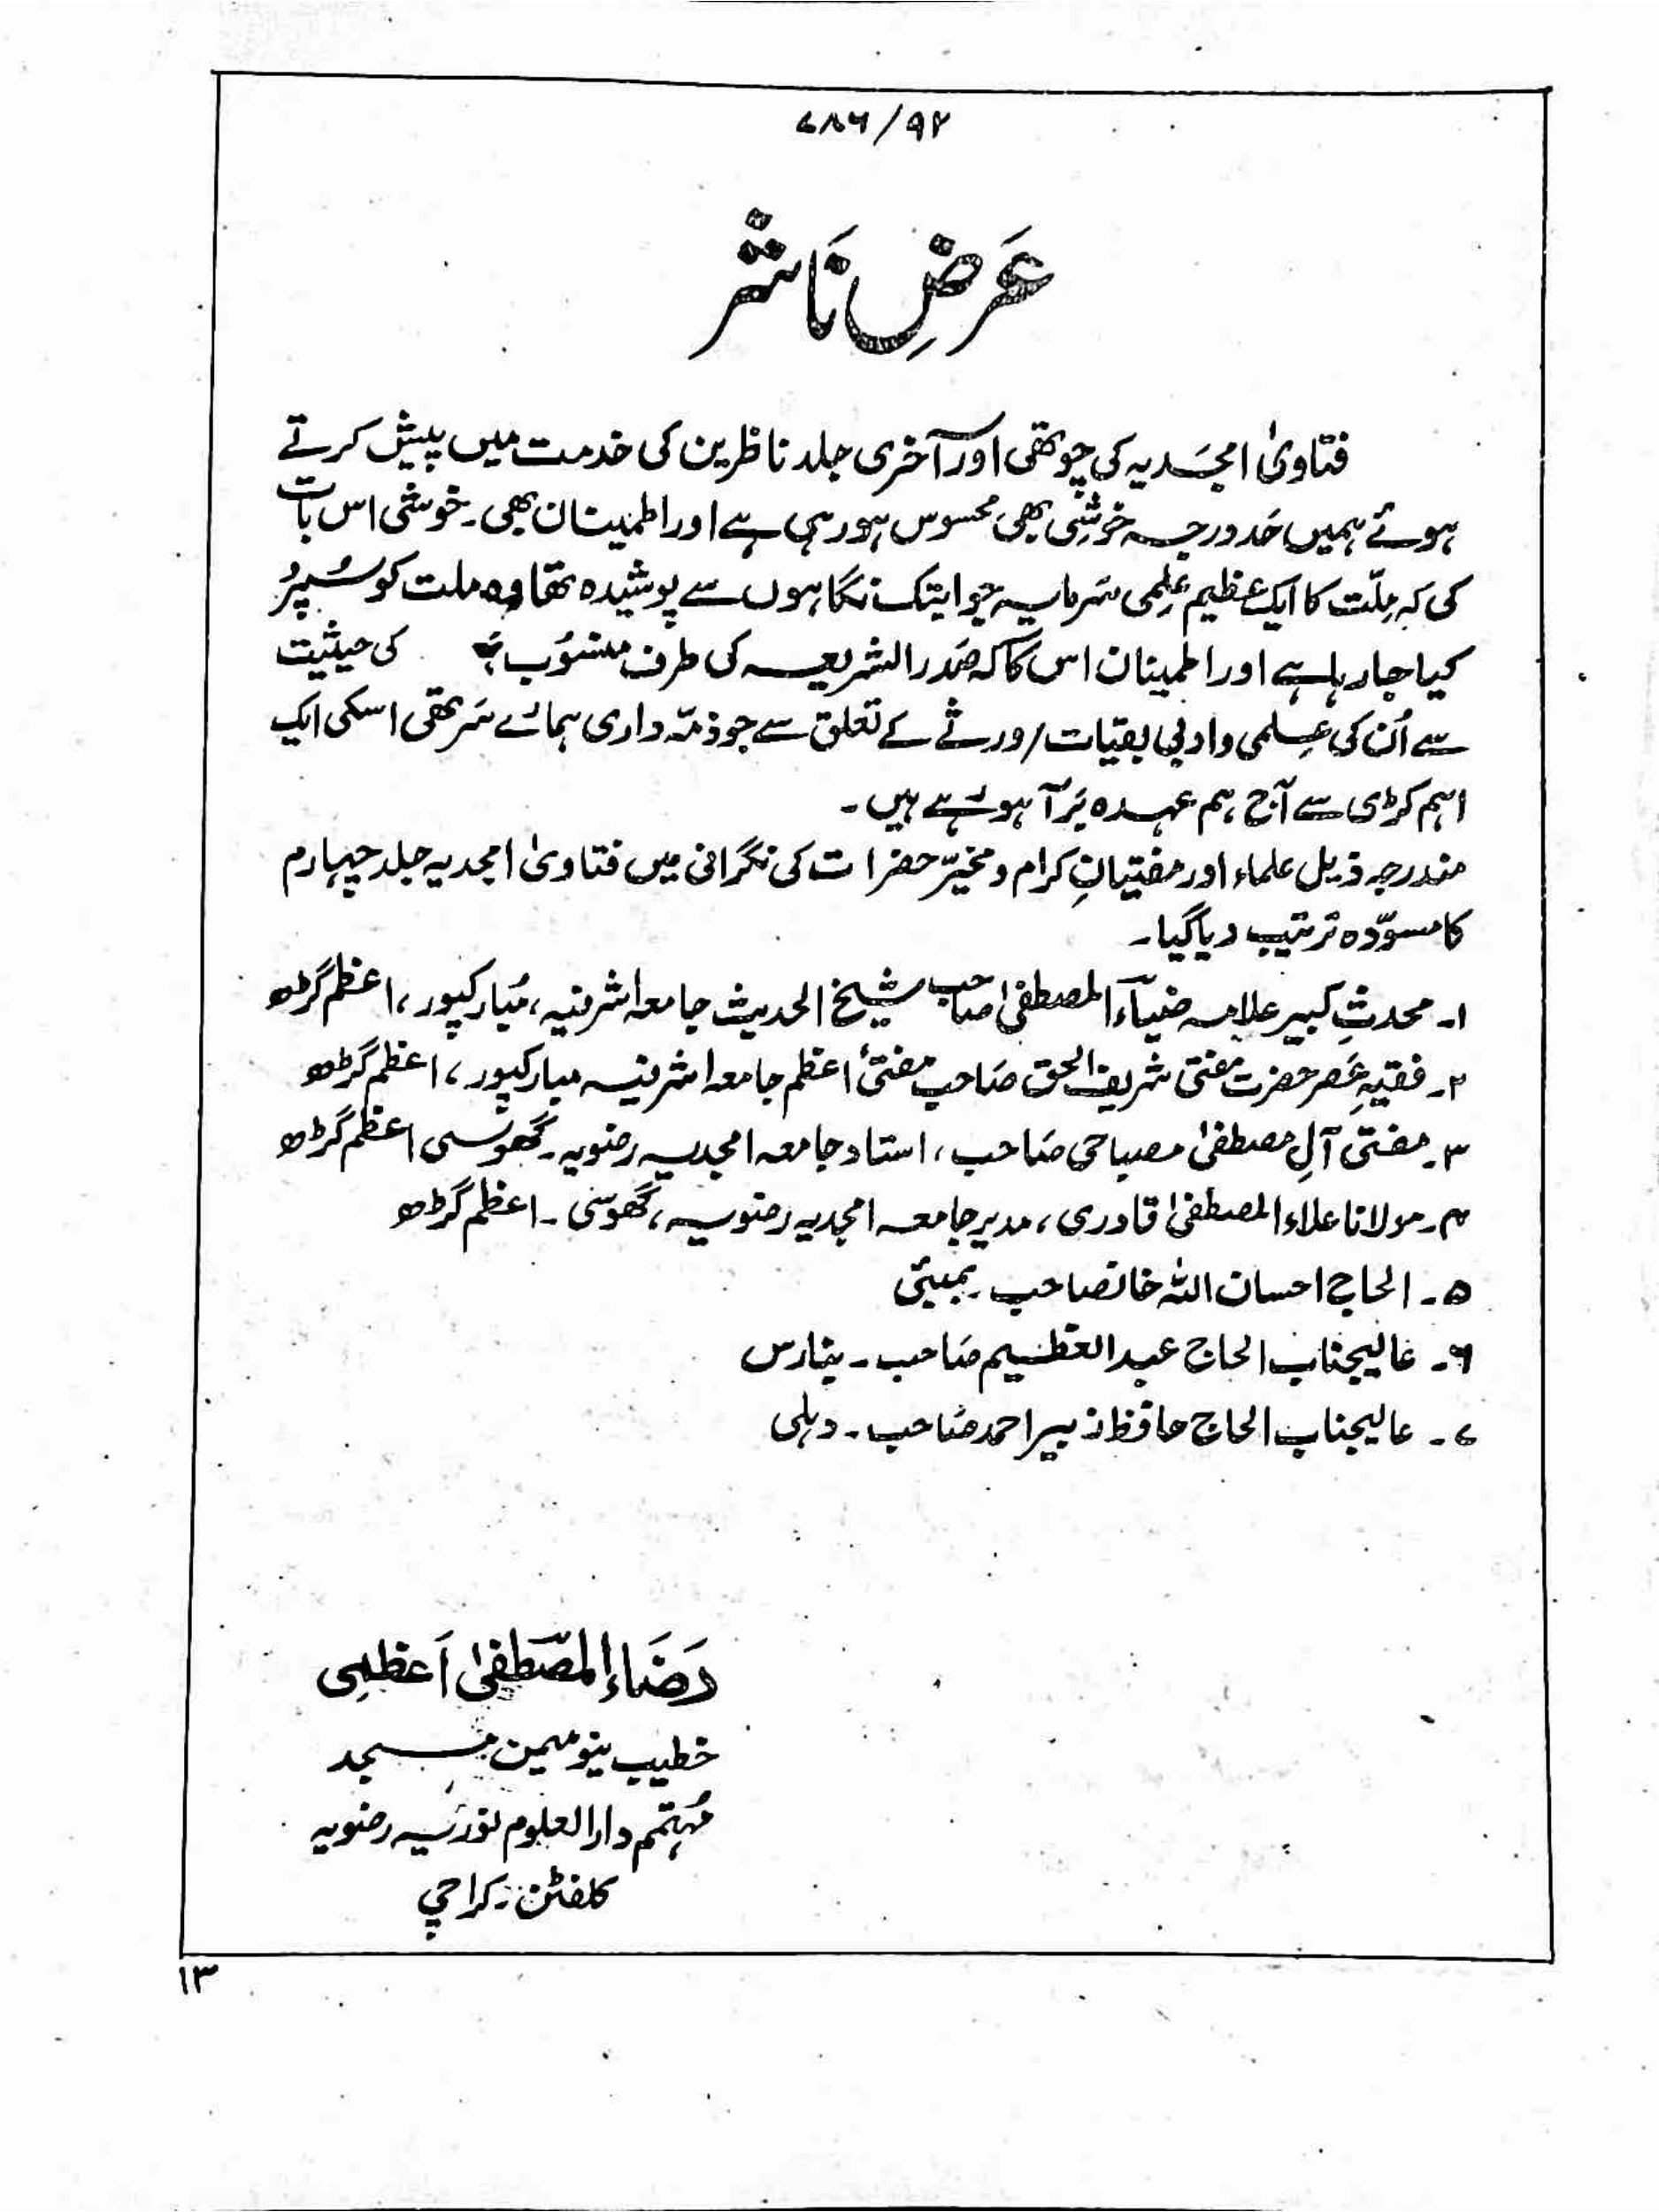 ۷۸۶/۹۲
عَرضِ نَاشر
فتاویٰ امجَدیہ کی چوتھی اور آخری جلد ناظرین کی خدمت میں پیش کرتے
ہوئے ہمیں حَد درجہ خوشی بھی محسوس ہو رہی ہے اور اطمینان بھی۔ خوشی اس بات
کی کہ مِلّت کا ایک عظیم عِلمی سَرمایہ جو ابتک نگاہوں سے پوشیدہ تھا وہ ملت کو سُپرُد
کیا جا رہا ہے اور اطمینان اس کا کہ صَدر الشریعہ کی طرف منسُوب کی حیثیت
سے اُن کی عِلمی و ادبی بقیات / ورثے کے تعلق سے جو ذمّہ داری ہمارے سَر تھی اسکی ایک
اہم کڑی سے آج ہم عہدہ بَر آ ہو رہے ہیں۔
مندرجہ ذیل علماء اور مفتیانِ کرام و مخیّر حضرات کی نگرانی میں فتاویٰ امجدیہ جلد چہارم
کا مسوّدہ ترتیب دیا گیا۔
۱۔ محدثِ کبیر علامہ ضیاءالمصطفیٰ صاحب شیخ الحدیث جامعہ اشرفیہ، مُبارکپور، اعظم گڑھ
۲۔ فقیہِ عَصر حضرت مفتی شریف الحق صَاحب مفتیٔ اعظم جامعہ اشرفیہ مبارکپور، اعظم گڑھ
۳۔ مفتی آلِ مصطفیٰ مصباحی صَاحب، استاد جامعہ امجدیہ رضویہ۔ گھوسی اعظم گڑھ
۴۔ مولانا علاءالمصطفیٰ قادری، مدیر جامعہ امجدیہ رضویہ، گھوسی۔ اعظم گڑھ
۵۔ الحاج احسان اللہ خانصاحب۔ بمبئی
۶۔ عالیجناب الحاج عبدالعظیم صَاحب۔ بنارس
۷۔ عالیجناب الحاج حافظ زبیر احمد صَاحب۔ دہلی
رَضَاءالمصَطَفیٰ اَعظمِی
خطیب نیو میمن مسجد
مُہتمم دارالعلوم نوریہ رضویہ
کلفٹن۔ کراچی
۱۳